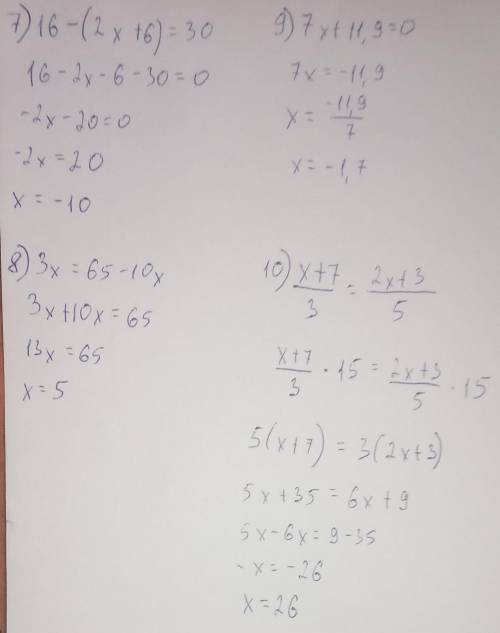 7) 16-(2x+6)=30
16-2x-6-30=0
-2x-20=0
-2x=20
x=-10
8) 3x=65-10x
3x+10x=65
13x=65
x=5
9) 7x+11,9=0
7x=-11,9
x=-11,9/7
x=-1,7
10) x+7/3=2x+3/5
x+7/3·15=2x+3/5·15
5(x+7)=3(2x+3)
5x+35=6x+9
5x-6x=9-35
-x=-26
x=26